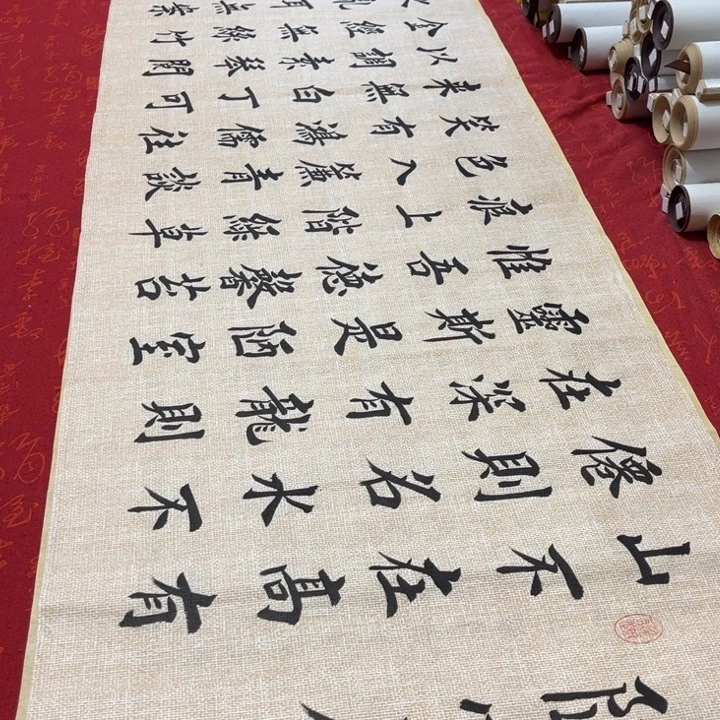 山不在高有
僊則名水不
在深有龍則
靈斯是陋室
惟吾德馨苔
痕上階綠草
色入簾青談
笑有鴻儒往
来無白丁可
以調素琴閱
金經無絲竹
耳無案